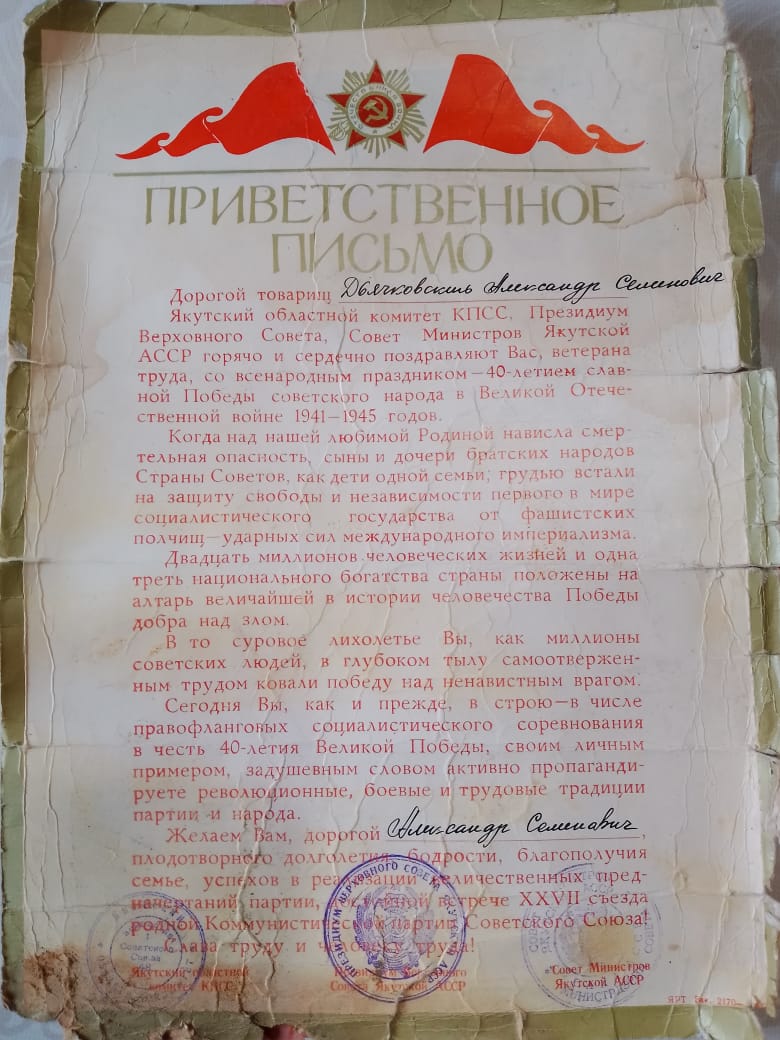 ОТЕЧЕСТВЕННАЯ ВОЙНА
ПРИВЕТСТВЕННОЕ
ПИСЬМО
Дорогой товарищ Дьячковскиль Александр Семенович
Якутский областной комитет КПСС, Президиум
Верховного Совета, Совет Министров Якутской
АССР горячо и сердечно поздравляют Вас, ветерана
труда, со всенародным праздником—40-летием слав-
ной Победы советского народа в Великой Отече-
ственной войне 1941—1945 годов.
Когда над нашей любимой Родиной нависла смер-
тельная опасность, сыны и дочери братских народов
Страны Советов, как дети одной семьи, грудью встали
на защиту свободы и независимости первого в мире
социалистического государства от фашистских
полчищ—ударных сил международного империализма.
Двадцать миллионов человеческих жизней и одна
треть национального богатства страны положены на
алтарь величайшей в истории человечества Победы
добра над злом.
В то суровое лихолетье Вы, как миллионы
советских людей, в глубоком тылу самоотвержен-
ным трудом ковали победу над ненавистным врагом.
Сегодня Вы, как и прежде, в строю—в числе
правофланговых социалистического соревнования
в честь 40-летия Великой Победы, своим личным
примером, задушевным словом активно пропаганди-
руете революционные, боевые и трудовые традиции
партии и народа.
Желаем Вам, дорогой Александр Семенович,
плодотворного долголетия, бодрости, благополучия
семье, успехов в реализации величественных пред-
начертаний партии, достойной встрече XXVII съезда
родной Коммунистической партии Советского Союза!
Слава труду и человеку труда!
Якутский областной
комитет КПСС
Президиум Верховного
Совета Якутской АССР
Совет Министров
Якутской АССР
ПРЕЗИДИУМ ВЕРХОВНОГО СОВЕТА ЯКУТСКОЙ АССР
Советского
Союза
ЯРТ Зак. 2170